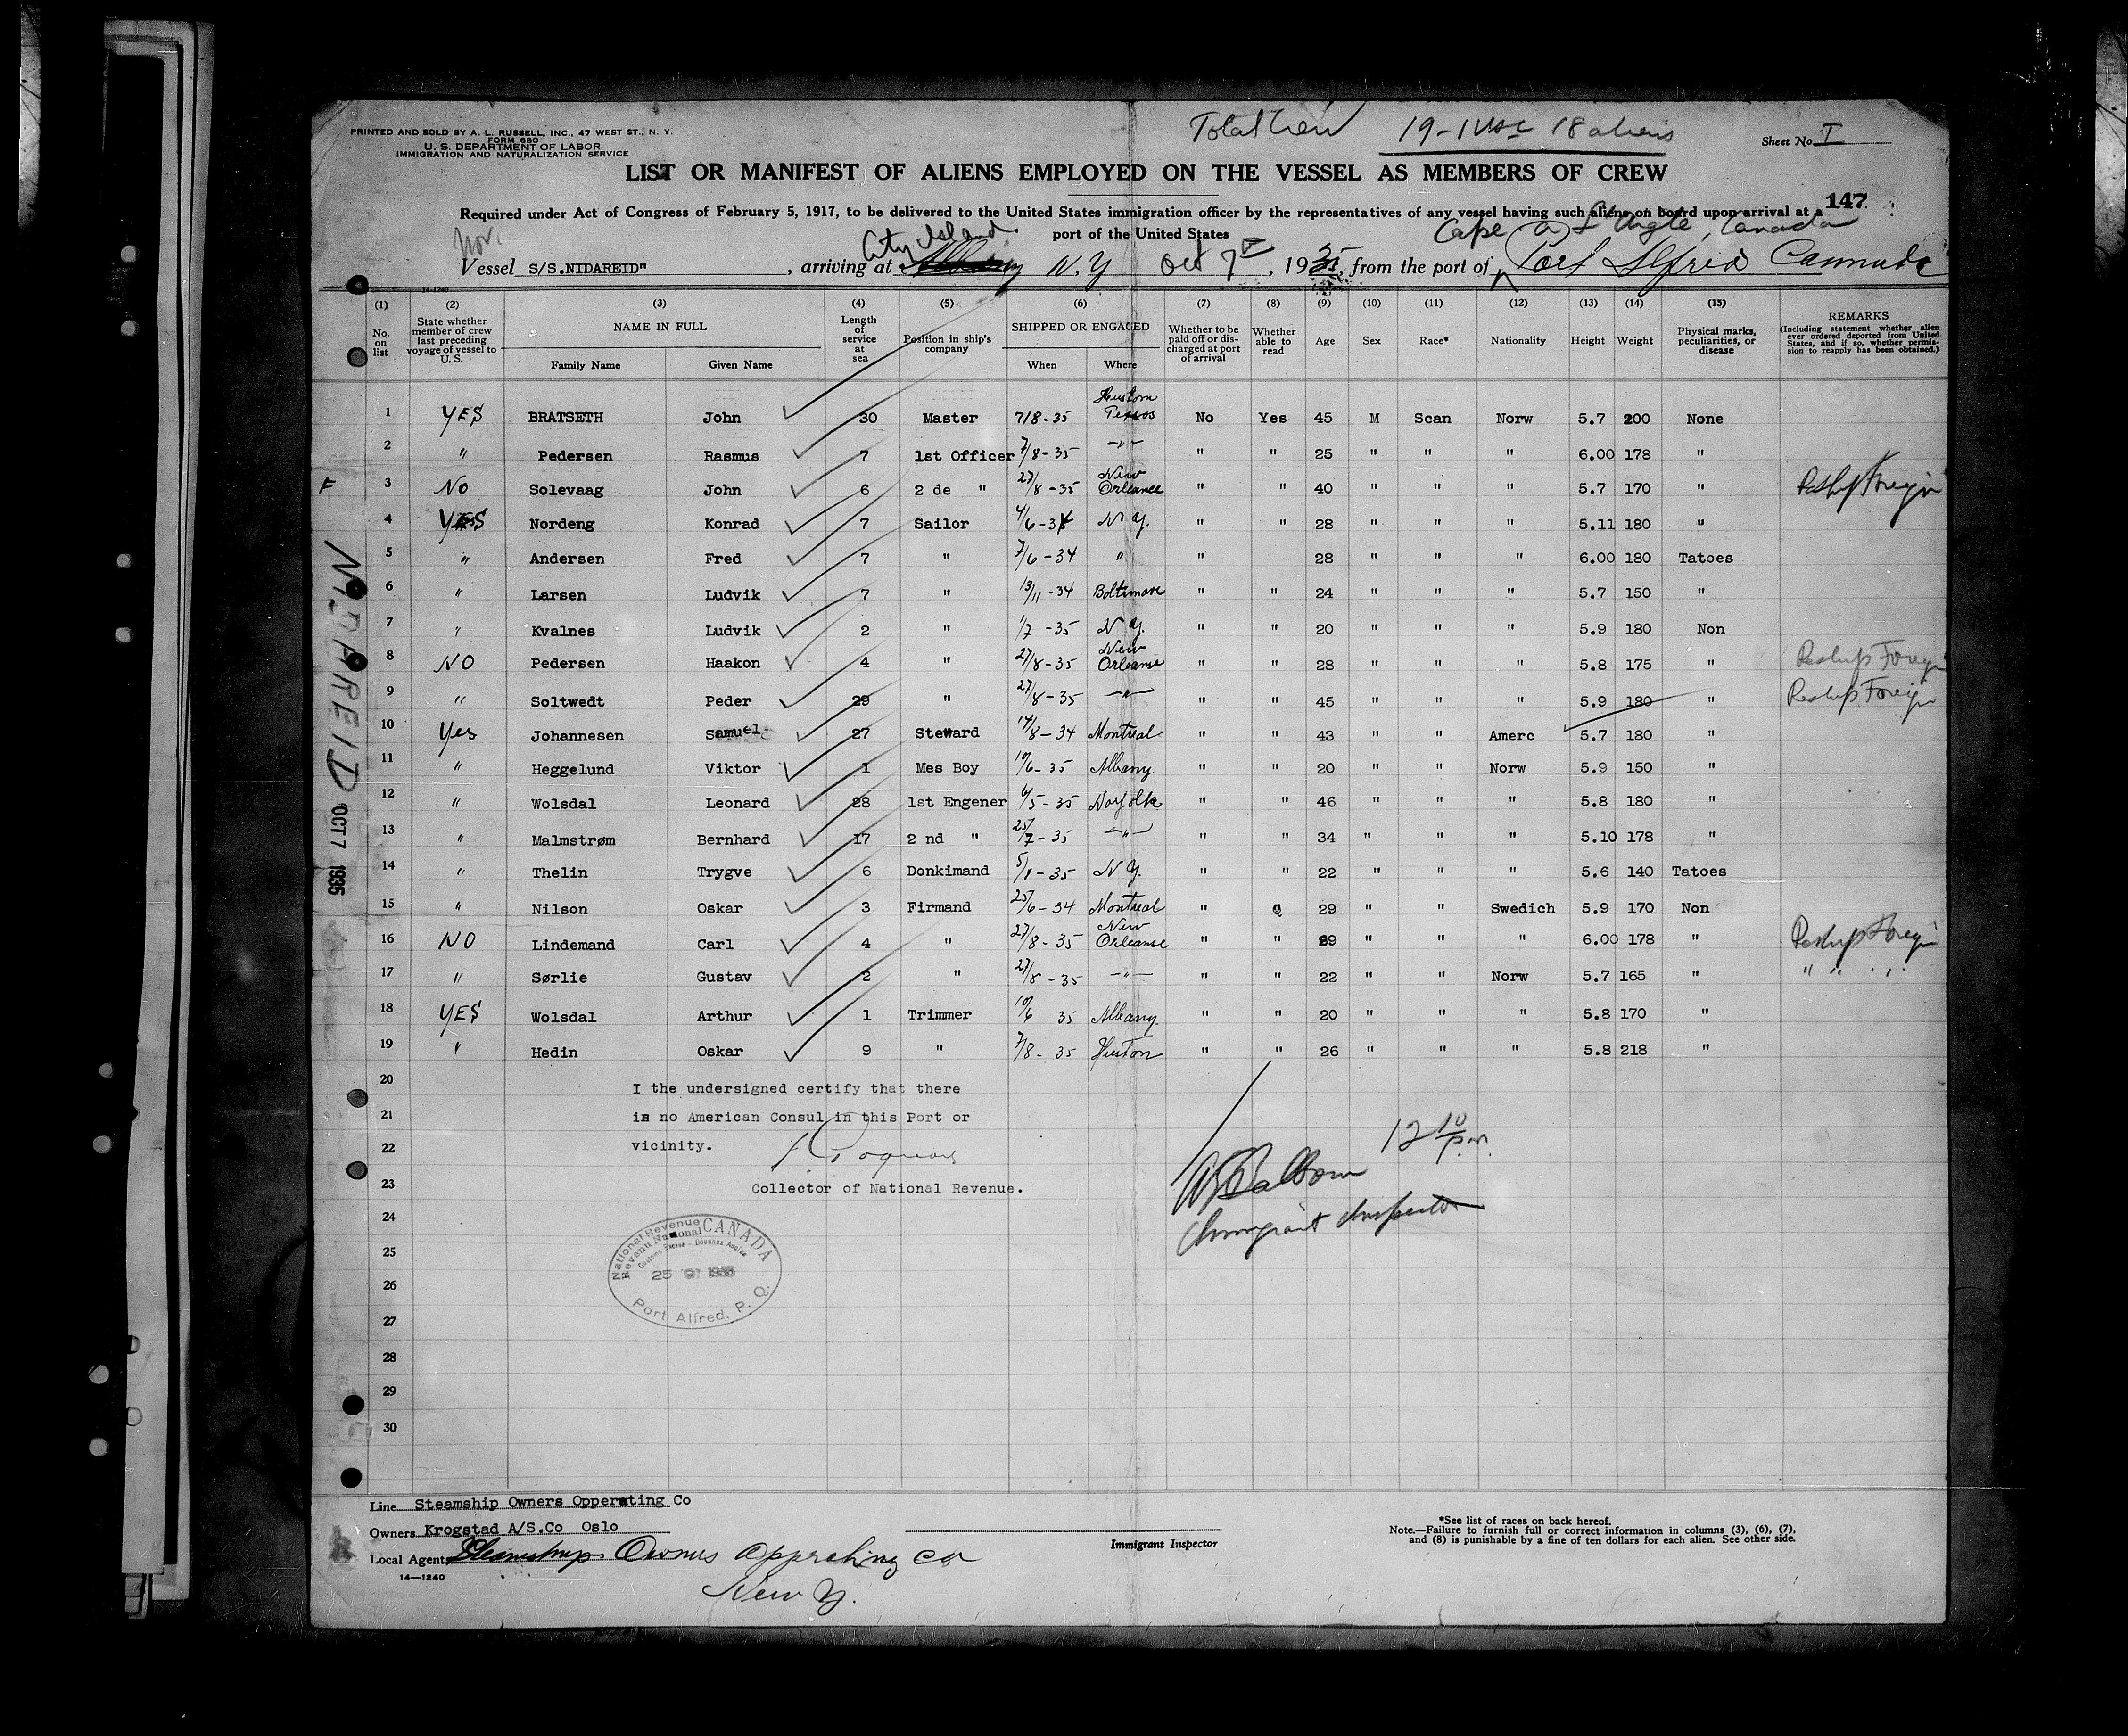 PRINTED AND SOLD BY A. L. RUSSELL, INC., 47 WEST ST., N. Y.
FORM 680
U. S. DEPARTMENT OF LABOR
IMMIGRATION AND NATURALIZATION SERVICE
Total Crew 19-1 USC 18 aliens
Sheet No. I
LIST OR MANIFEST OF ALIENS EMPLOYED ON THE VESSEL AS MEMBERS OF CREW
147
Required under Act of Congress of February 5, 1917, to be delivered to the United States immigration officer by the representatives of any vessel having such aliens on board upon arrival at a
port of the United States
Nor. City Island Cape a L'Angle, Canada
Vessel S/S.NIDAREID", arriving at N.Y Oct 7, 1935, from the port of Port Alfred Cannada
14-1240
(1) (2) (3) (4) (5) (6) (7) (8) (9) (10) (11) (12) (13) (14) (15)
No. on list
State whether member of crew last preceding voyage of vessel to U. S.
NAME IN FULL
Family Name Given Name
Length of service at sea
Position in ship's company
SHIPPED OR ENGAGED
When Where
Whether to be paid off or discharged at port of arrival
Whether able to read
Age Sex Race* Nationality Height Weight
Physical marks, peculiarities, or disease
REMARKS
(Including statement whether alien ever ordered deported from United States, and if so, whether permission to reapply has been obtained.)
1 YES BRATSETH John 30 Master 7/8-35 Hustom Texsos No Yes 45 M Scan Norw 5.7 200 None
2 " Pedersen Rasmus 7 1st Officer 7/8-35 -"- " " 25 " " " 6.00 178 "
F 3 No Solevaag John 6 2 de " 27/8-35 New Orleance " " 40 " " " 5.7 170 " Reship Foreign
4 YES Nordeng Konrad 7 Sailor 4/6-34 N Y. " " 28 " " " 5.11 180 "
5 " Andersen Fred 7 " 7/6-34 " " 28 " " " 6.00 180 Tatoes
6 " Larsen Ludvik 7 " 13/11-34 Boltimore " " 24 " " " 5.7 150 "
7 " Kvalnes Ludvik 2 " 1/7-35 N Y. " " 20 " " " 5.9 180 Non
8 NO Pedersen Haakon 4 " 27/8-35 New Orleanse " " 28 " " " 5.8 175 " Reship Foreign
9 " Soltwedt Peder 29 " 27/8-35 -"- " " 45 " " " 5.9 180 " Reship Foreign
10 Yes Johannesen Samuel 27 Steward 14/8-34 Montreal " " 43 " " Amerc 5.7 180 "
11 " Heggelund Viktor 1 Mes Boy 10/6-35 Albany. " " 20 " " Norw 5.9 150 "
12 " Wolsdal Leonard 28 1st Engener 6/5-35 Norfolk " " 46 " " " 5.8 180 "
13 " Malmstrøm Bernhard 17 2 nd " 25/7-35 -"- " " 34 " " " 5.10 178 "
14 " Thelin Trygve 6 Donkimand 5/1-35 N Y. " " 22 " " " 5.6 140 Tatoes
15 " Nilson Oskar 3 Firmand 25/6-34 Montreal " " 29 " " Swedich 5.9 170 Non
16 NO Lindemand Carl 4 " 27/8-35 New Orleanse " " 29 " " " 6.00 178 " Reship Foreign
17 " Sørlie Gustav 2 " 27/8-35 -"- " " 22 " " Norw 5.7 165 " " " "
18 YES Wolsdal Arthur 1 Trimmer 10/6 35 Albany. " " 20 " " " 5.8 170 "
19 " Hedin Oskar 9 " 7/8-35 Huston " " 26 " " " 5.8 218 "
20
21
22
23
24
25
26
27
28
29
30
I the undersigned certify that there
is no American Consul in this Port or
vicinity.
Collector of National Revenue.
12 10 p.m.
Immigrant Inspector
National Revenue CANADA
Revenu National
Customs Excise - Douanes Accise
25
Port Alfred, P. Q.
NIDAREID
OCT 7 1935
Line Steamship Owners Opperating Co
Owners Krogstad A/S.Co Oslo
Local Agents Steamship Owners Opprating Co
New Y.
14—1240
Immigrant Inspector
*See list of races on back hereof.
Note.—Failure to furnish full or correct information in columns (3), (6), (7),
and (8) is punishable by a fine of ten dollars for each alien. See other side.